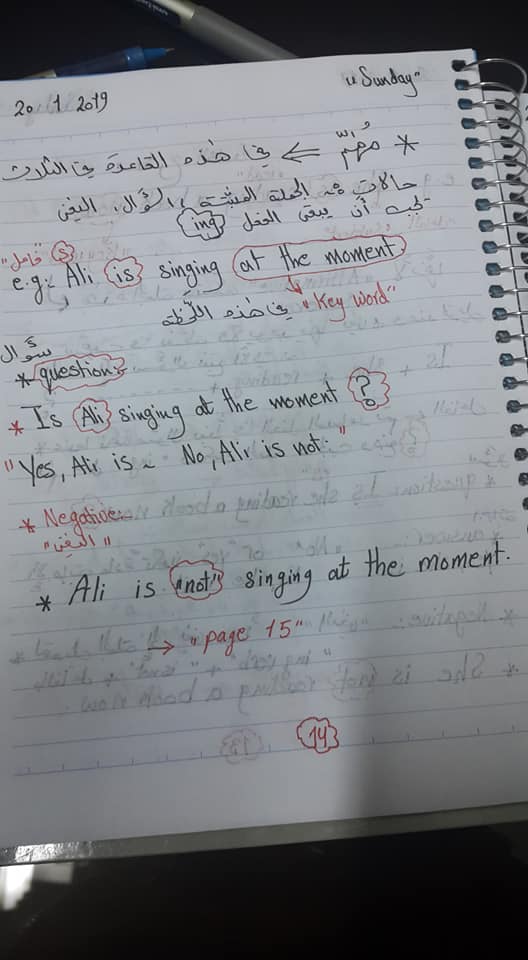 20/1/2019 "Sunday"
* مُهِمّ ⇐ في هذه القاعدة في الثلاث
حالات من الجملة المثبتة، السؤال، النفي
يجب أن يبقى الفعل (ing)
"فاعل" (S)
e.g:- Ali is singing at the moment
في هذه اللّحظة "Key word"
سؤال
* question:-
* Is Ali singing at the moment ?
"Yes, Ali is ~ No, Ali is not."
* Negative:-
"النفي"
* Ali is "not" singing at the moment.
→ "page 15"
14